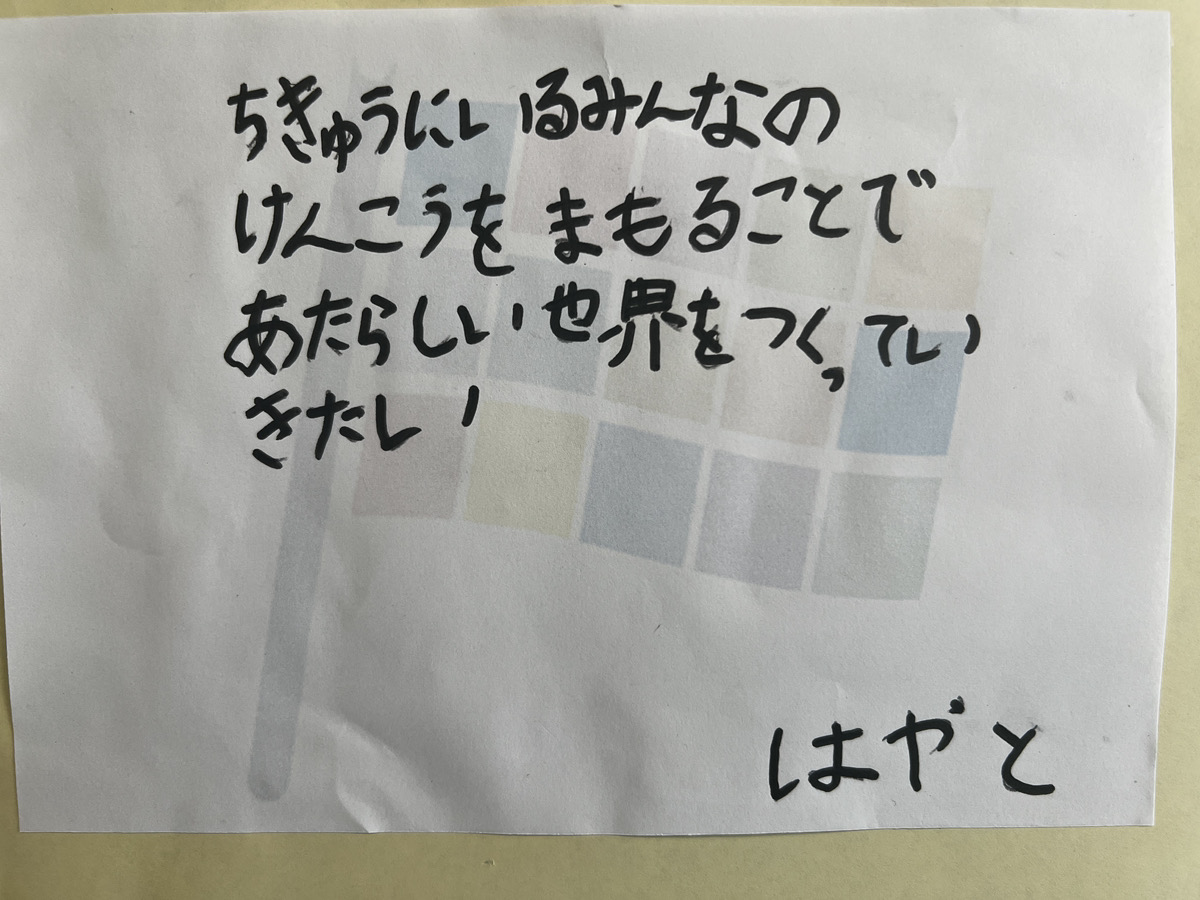 ちきゅうにいるみんなの
けんこうをまもることで
あたらしい世界をつくってい
きたい
はやと